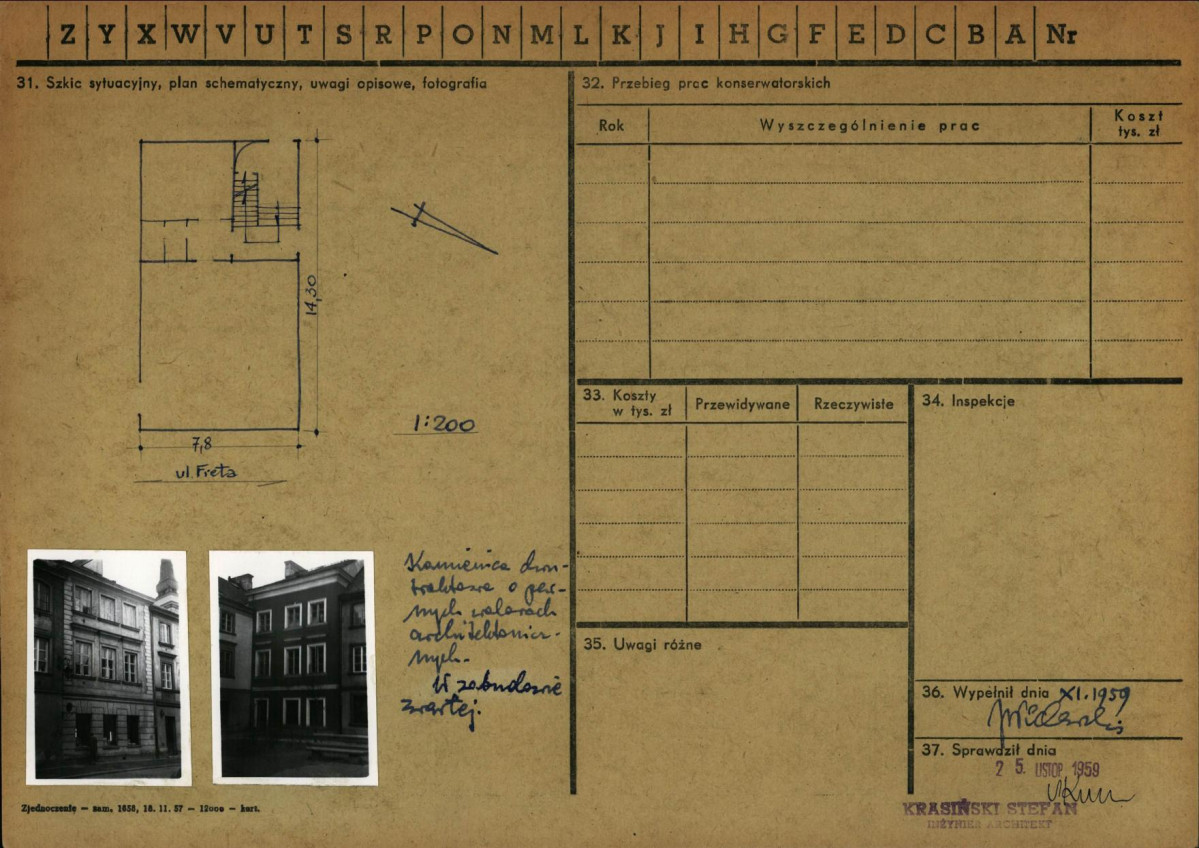 Z Y X W V U T S R P O N M L K J I H G F E D C B A Nr
31. Szkic sytuacyjny, plan schematyczny, uwagi opisowe, fotografia
14,30
7,8
ul. Freta
1:200
Kamienica dwu-
traktowa o pew-
nych walorach
architektonicz-
nych.
W zabudowie
zwartej.
Zjednoczenie — zam. 1658, 18. 11. 57 — 12000 — kart.
32. Przebieg prac konserwatorskich
Rok
Wyszczególnienie prac
Koszt
tys. zł
33. Koszty
w tys. zł
Przewidywane
Rzeczywiste
34. Inspekcje
35. Uwagi różne
36. Wypełnił dnia XI.1959
37. Sprawdził dnia
25. LISTOP. 1959
KRASIŃSKI STEFAN
INŻYNIER ARCHITEKT